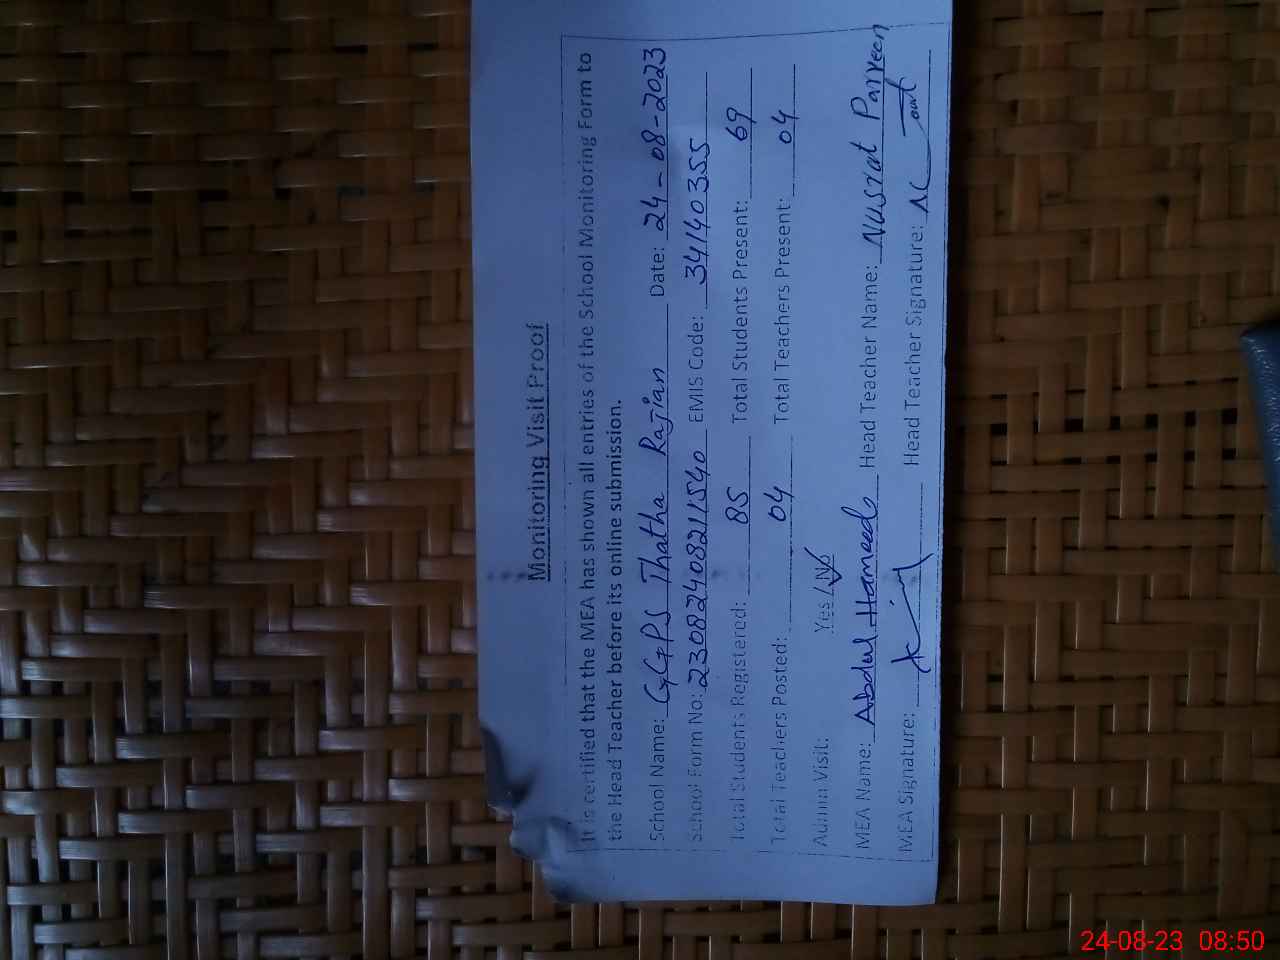 Monitoring Visit Proof
It is certified that the MEA has shown all entries of the School Monitoring Form to
the Head Teacher before its online submission.
School Name: GGPS Thatha Rajian Date: 24-08-2023
School Form No: 230824082111540 EMIS Code: 34140355
Total Students Registered: 85 Total Students Present: 69
Total Teachers Posted: 04 Total Teachers Present: 04
Admin Visit: Yes / No
MEA Name: Abdul Hameed Head Teacher Name: Nusrat Parveen
MEA Signature: Head Teacher Signature:
24-08-23 08:50